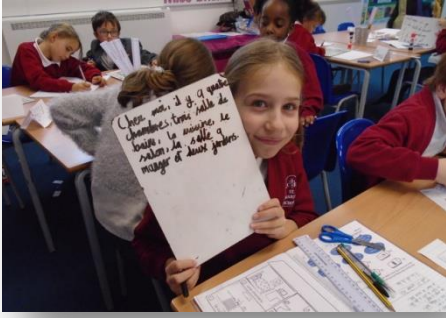 Chez moi, il y a quatre
chambres, trois salle de
bains, la cuisine, le
salon, la salle a
manger et deux jardins.